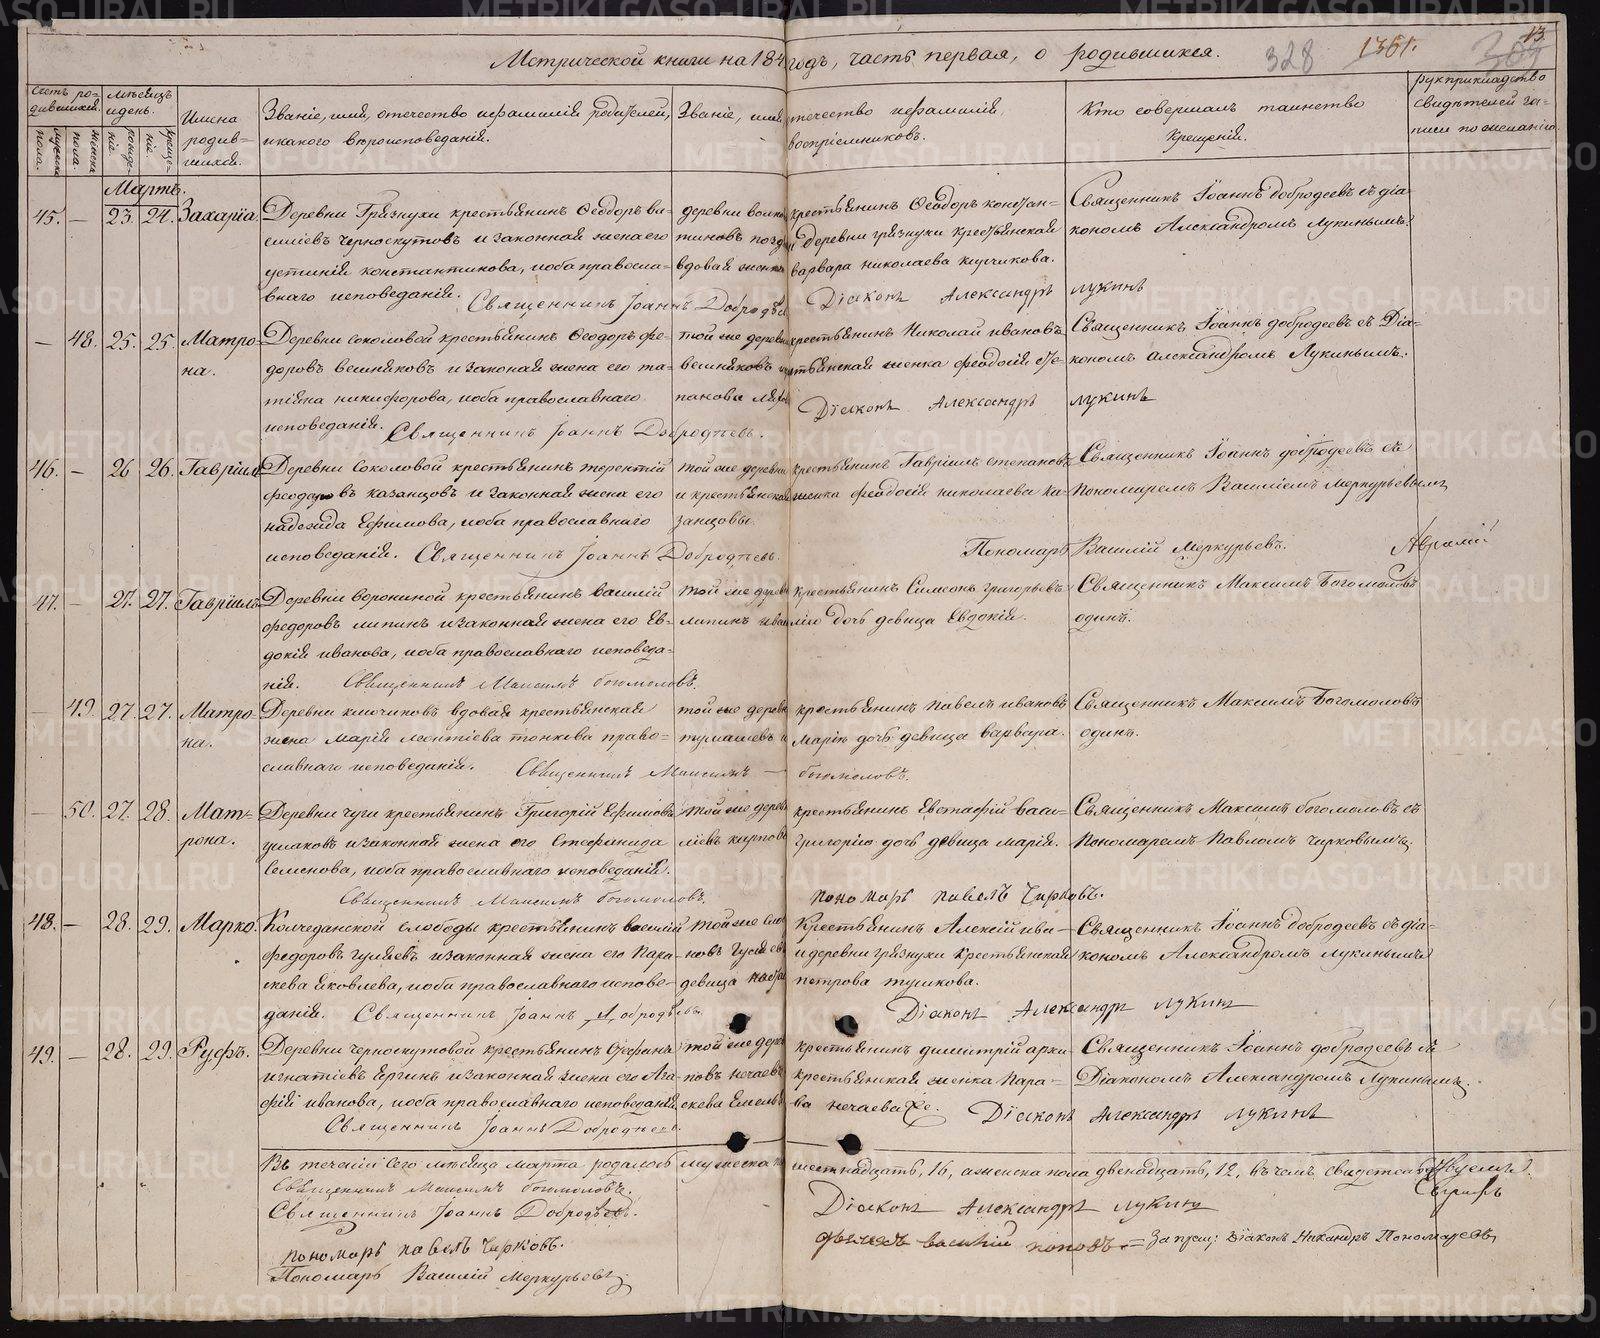 Метрической книги на 184 годъ, часть первая, о родившихся.
328
1361.
13.
Счетъ родившихся. мужеска пола. женска пола.
Мѣсяцъ и день. рожденіе. крещеніе.
Имена родившихся.
Званіе, имя, отечество и фамилія родителей, и какого вѣроисповеданія.
Званіе, имя, отечество и фамилія воспріемниковъ.
Кто совершалъ таинство крещенія.
рукприкладство свидѣтелей записи по желанію.
Мартъ.
45. — 23. 24. Захарія.
Деревни Грязнухи крестьянинъ Ѳеодоръ ва-
силіевъ Черноскутовъ и законная жена его
устинія константинова, иоба правосла-
внаго исповеданія. Священникъ Іоаннъ Добродѣевъ
крестьянинъ Ѳеодоръ констан-
тиновъ
деревни грязнухи крестьянская
вдовая женка варвара николаева
Діаконъ Александръ Лукинъ
Священникъ Іоаннъ добродеевъ съ діа-
кономъ Александромъ Лукинымъ.
— 48. 25. 25. Матро-
на.
Деревни соколовой крестьянинъ Ѳеодоръ фе-
доровъ вешняковъ и законая жена его та-
тіяна никифорова, иоба православнаго
исповеданія. Священникъ Іоаннъ Добродѣевъ.
той же деревни крестьянинъ Николай ивановъ
вешняковъ и крестьянская женка феодосія сте-
панова
Діаконъ Александръ Лукинъ
Священникъ Іоаннъ добродеевъ съ Діа-
кономъ александромъ Лукинымъ.
46. — 26 26. Гавріилъ
Деревни Соколовой крестьянинъ терентій
феодоровъ казанцовъ и законная жена его
надежда Ефимова, иоба православнаго
исповеданія. Священникъ Іоаннъ Добродѣевъ.
той же деревни крестьянинъ Гавріилъ степановъ
и крестьянская женка феодосія николаева ка-
занцовы.
Пономарь Василій Меркурьевъ.
Священникъ Іоаннъ добродеевъ съ
пономаремъ Василіемъ меркурьевымъ
47. — 27. 27. Гавріилъ
Деревни ворониной крестьянинъ василій
федоровъ липинъ и законная жена его Ев-
докія иванова, иоба православнаго исповеда-
нія. Священникъ Максимъ богомоловъ.
той же деревни крестьянинъ Симеонъ григорьевъ
липинъ дочь девица Евдокія.
Священникъ Максимъ Богомоловъ
одинъ.
— 49. 27. 27. Матро-
на.
Деревни ключиковъ вдовая крестьянская
жена Марія леонтіева тонкова право-
славнаго исповеданія. Священникъ Максимъ — богомоловъ.
той же деревни крестьянинъ павелъ ивановъ
тумашевъ и марію дочь девица варвара.
Священникъ Максимъ Богомоловъ
одинъ.
— 50. 27. 28. Мат-
рона.
Деревни чуги крестьянинъ Григорій Ефимовъ
ушаковъ и законная жена его Стефанида
Семенова, иоба православнаго исповеданія.
Священникъ Максимъ богомоловъ.
той же деревни крестьянинъ Евстафій васи-
ліевъ карповъ григорію дочь девица марія.
пономарь павелъ Чирковъ.
Священникъ Максимъ богомоловъ съ
Пономаремъ Павломъ чирковымъ.
48. — 28. 29. Марко.
Колчеданской слободы крестьянинъ василій
федоровъ гуляевъ и законная жена его Пара-
скева Яковлева, иоба православнаго испове-
данія. Священникъ Іоаннъ Добродѣевъ.
той же крестьянинъ Алексій ива-
новъ и деревни грязнухи крестьянская
девица петрова
Діаконъ Александръ Лукинъ
Священникъ Іоаннъ добродеевъ съ діа-
кономъ Александромъ лукинымъ
49. — 28. 29. Руфъ.
Деревни черноскутовой крестьянинъ Стефанъ
игнатіевъ Ергинъ и законная жена его Ага-
фія иванова, иоба православнаго исповеданія.
Священникъ Іоаннъ Добродѣевъ.
той же деревни крестьянинъ димитрій архи-
повъ нечаевъ крестьянская женка Пара-
скева нечаева
Діаконъ Александръ Лукинъ
Священникъ Іоаннъ добродеевъ съ
Діакономъ Александромъ Лукинымъ.
Въ теченіи сего мѣсяца марта родилось мужеска шестнадцать, 16, а женска пола двенадцать, 12, въ чемъ свидетельствуемъ.
Священникъ Максимъ богомоловъ.
Священникъ Іоаннъ Добродѣевъ.
Діаконъ Александръ Лукинъ
пономарь павелъ Чирковъ.
Пономарь Василій Меркурьевъ
василій поповъ. = Діаконъ Никандръ Пономаревъ
METRIKI.GASO-URAL.RU